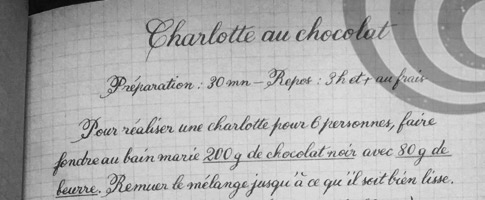 Charlotte au chocolat
Préparation : 30 mn - Repos : 3h et + au frais
Pour réaliser une charlotte pour 6 personnes, faire
fondre au bain marie 200 g de chocolat noir avec 80 g de
beurre. Remuer le mélange jusqu'à ce qu'il soit bien lisse.